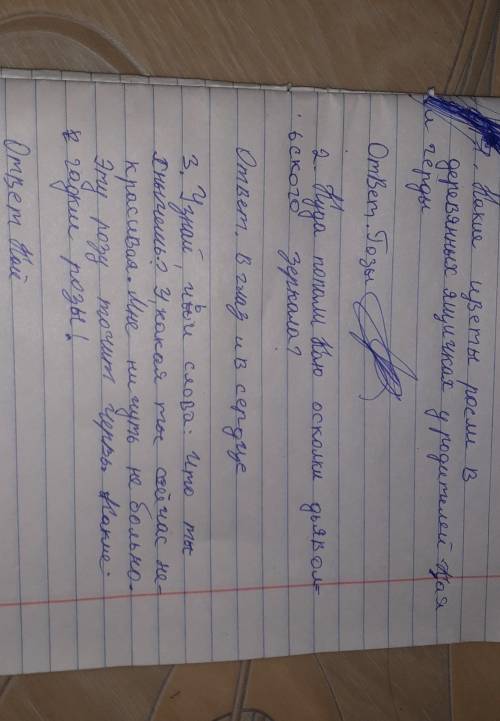 1. Какие цветы росли в
деревянных ящичках у родителей Кая
и Герды
Ответ. Розы
2. Куда попали Каю осколки дьяволь-
ьского зеркала?
Ответ. В глаз и в сердце
3. Узнай, чьи слова: Что ты
хнычешь? У, какая ты сейчас не-
красивая. Мне ничуть не больно.
Эту розу точит червь. Какие
гадкие розы!
Ответ Кай